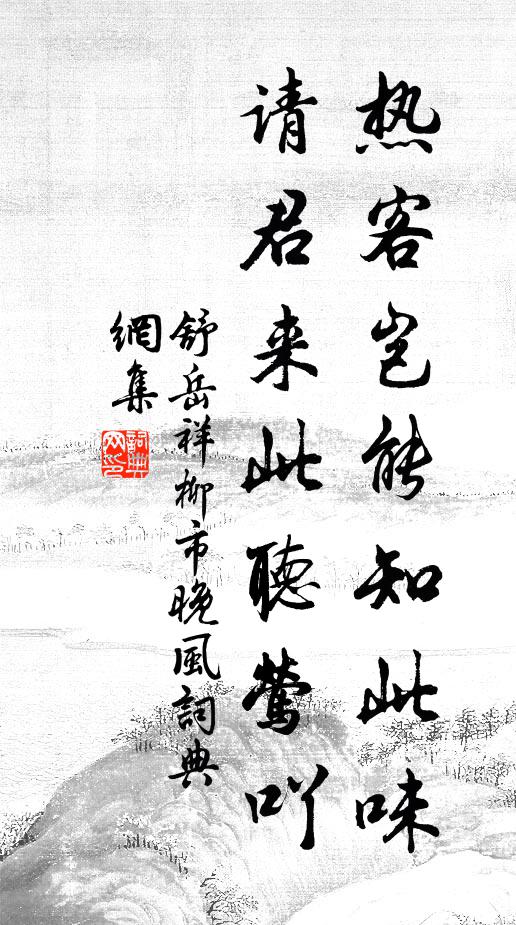 热客岂能知此味
请君来此聽莺吖
舒岳祥柳市晚風詞典
網集
詞典網印